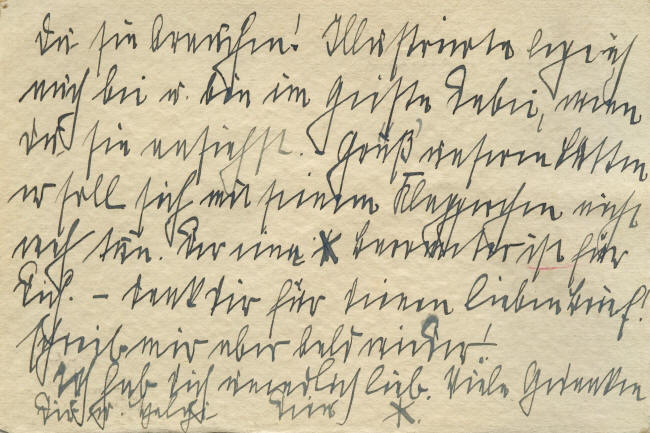 Du sie brauchen! Illustrierte lege ich
auch bei u. bin im Geiste dabei, wenn
Du sie ansiehst. – Grüß unseren
er soll sich mit seinem Klapperchen nicht
weh tun. Der eine X darunter ist für
Dich. – Dank Dir für Deinen lieben Brief!
Schreib mir aber bald wieder!
Ich hab Dich unendlich lieb. Viele Gedanken
Dir u. Helga Dein X.